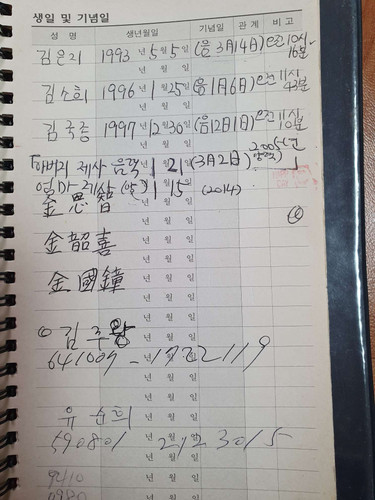 생일 및 기념일
성 명 생년월일 기념일 관계 비고
김은지 1993년 5월 5일 (음 3월 14일) 오전 10시 16분
년 월 일
김소희 1996년 1월 25일 (음 1월 6일) 오전 11시 43분
년 월 일
김국종 1997년 12월 30일 (음 12월 1일) 오전 11시 10분
년 월 일
아버지 제사 음력 1월 21일 (3월 2일) 2005년
엄마 제 (양) 1월 15일 (2014)
金思智 년 월 일
년 월 일
金韶喜 년 월 일
년 월 일
金國鐘 년 월 일
년 월 일
김주왕 년 월 일
641009 -
년 월 일
년 월 일
유순희 년 월 일
590801
년 월 일
년 월 일
년 월 일